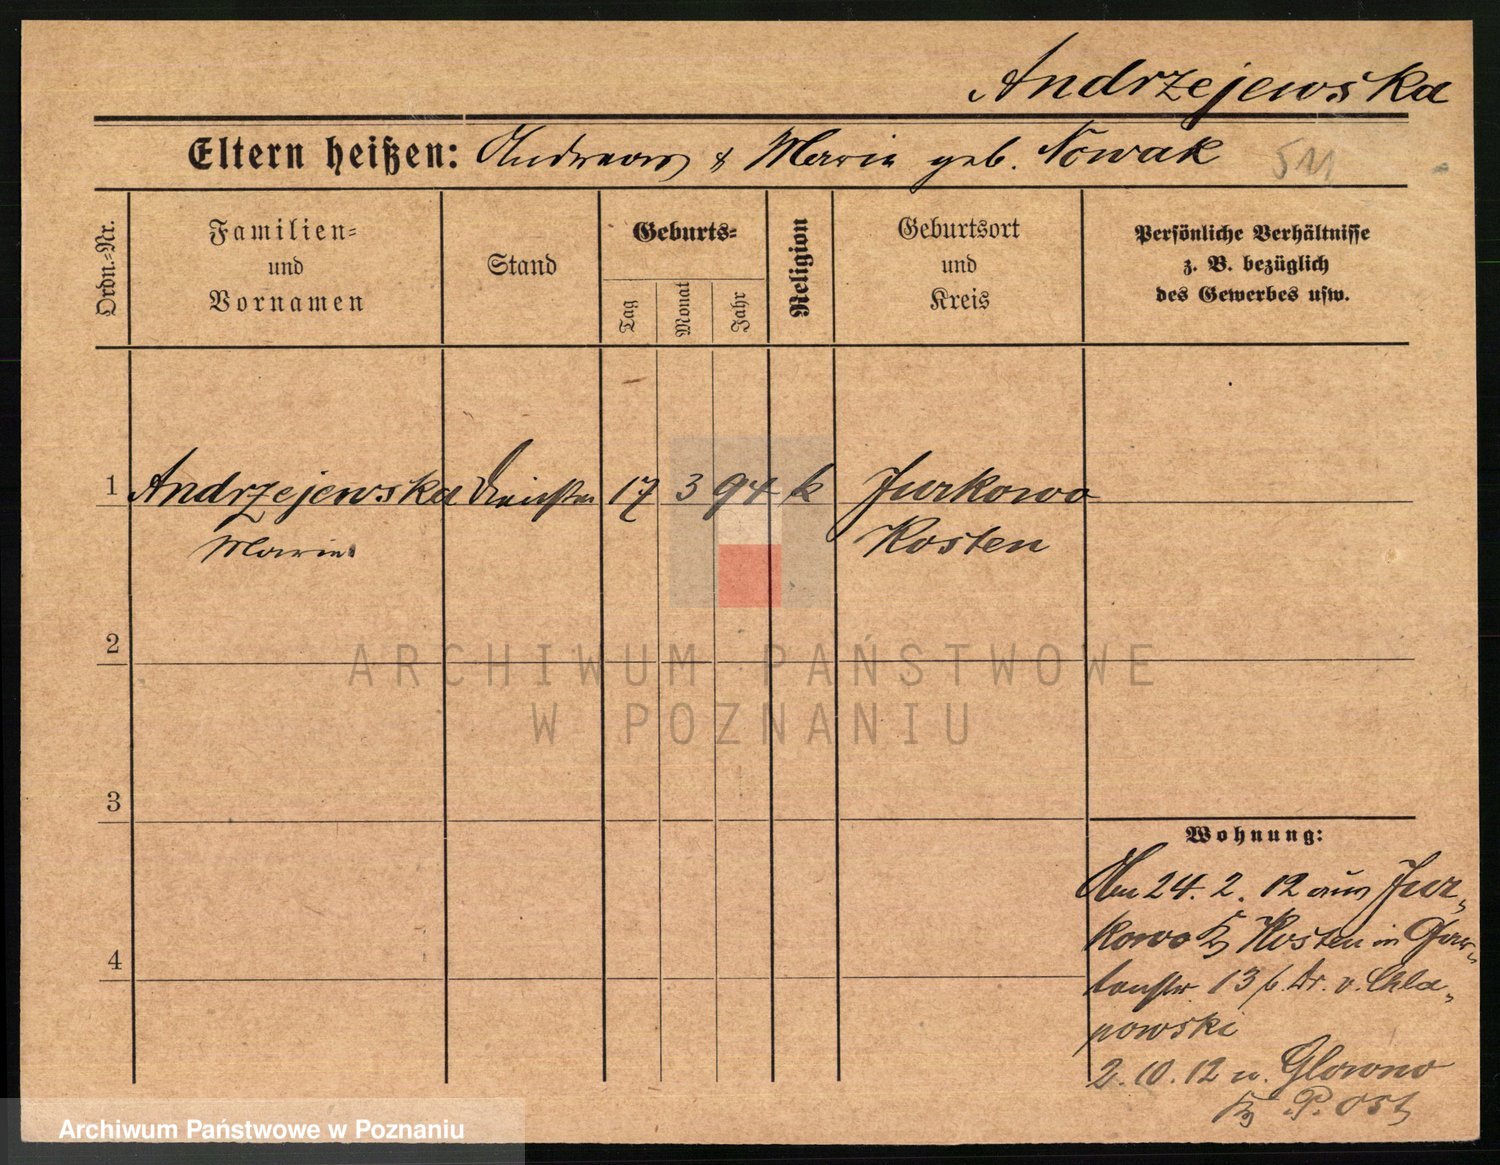 Andrzejewska
Eltern heißen: Andreas & Marie geb. Nowak 511
Ordn.-Nr.
Familien-
und
Vornamen
Stand
Geburts-
Tag
Monat
Jahr
Religion
Geburtsort
und
Kreis
Persönliche Verhältnisse
z. B. bezüglich
des Gewerbes usw.
1 Andrzejewska 17 3 94 k Jurkowo
Marie Kosten
2
ARCHIWUM PAŃSTWOWE
W POZNANIU
3
Wohnung:
Am 24. 2. 12 aus Jur-
kowo Kr Kosten in Gar-
tenstr. 13 b. Dr. v. Chla-
powski
4
2. 10. 12 n. Glowno
Kr P. Ost
Archiwum Państwowe w Poznaniu